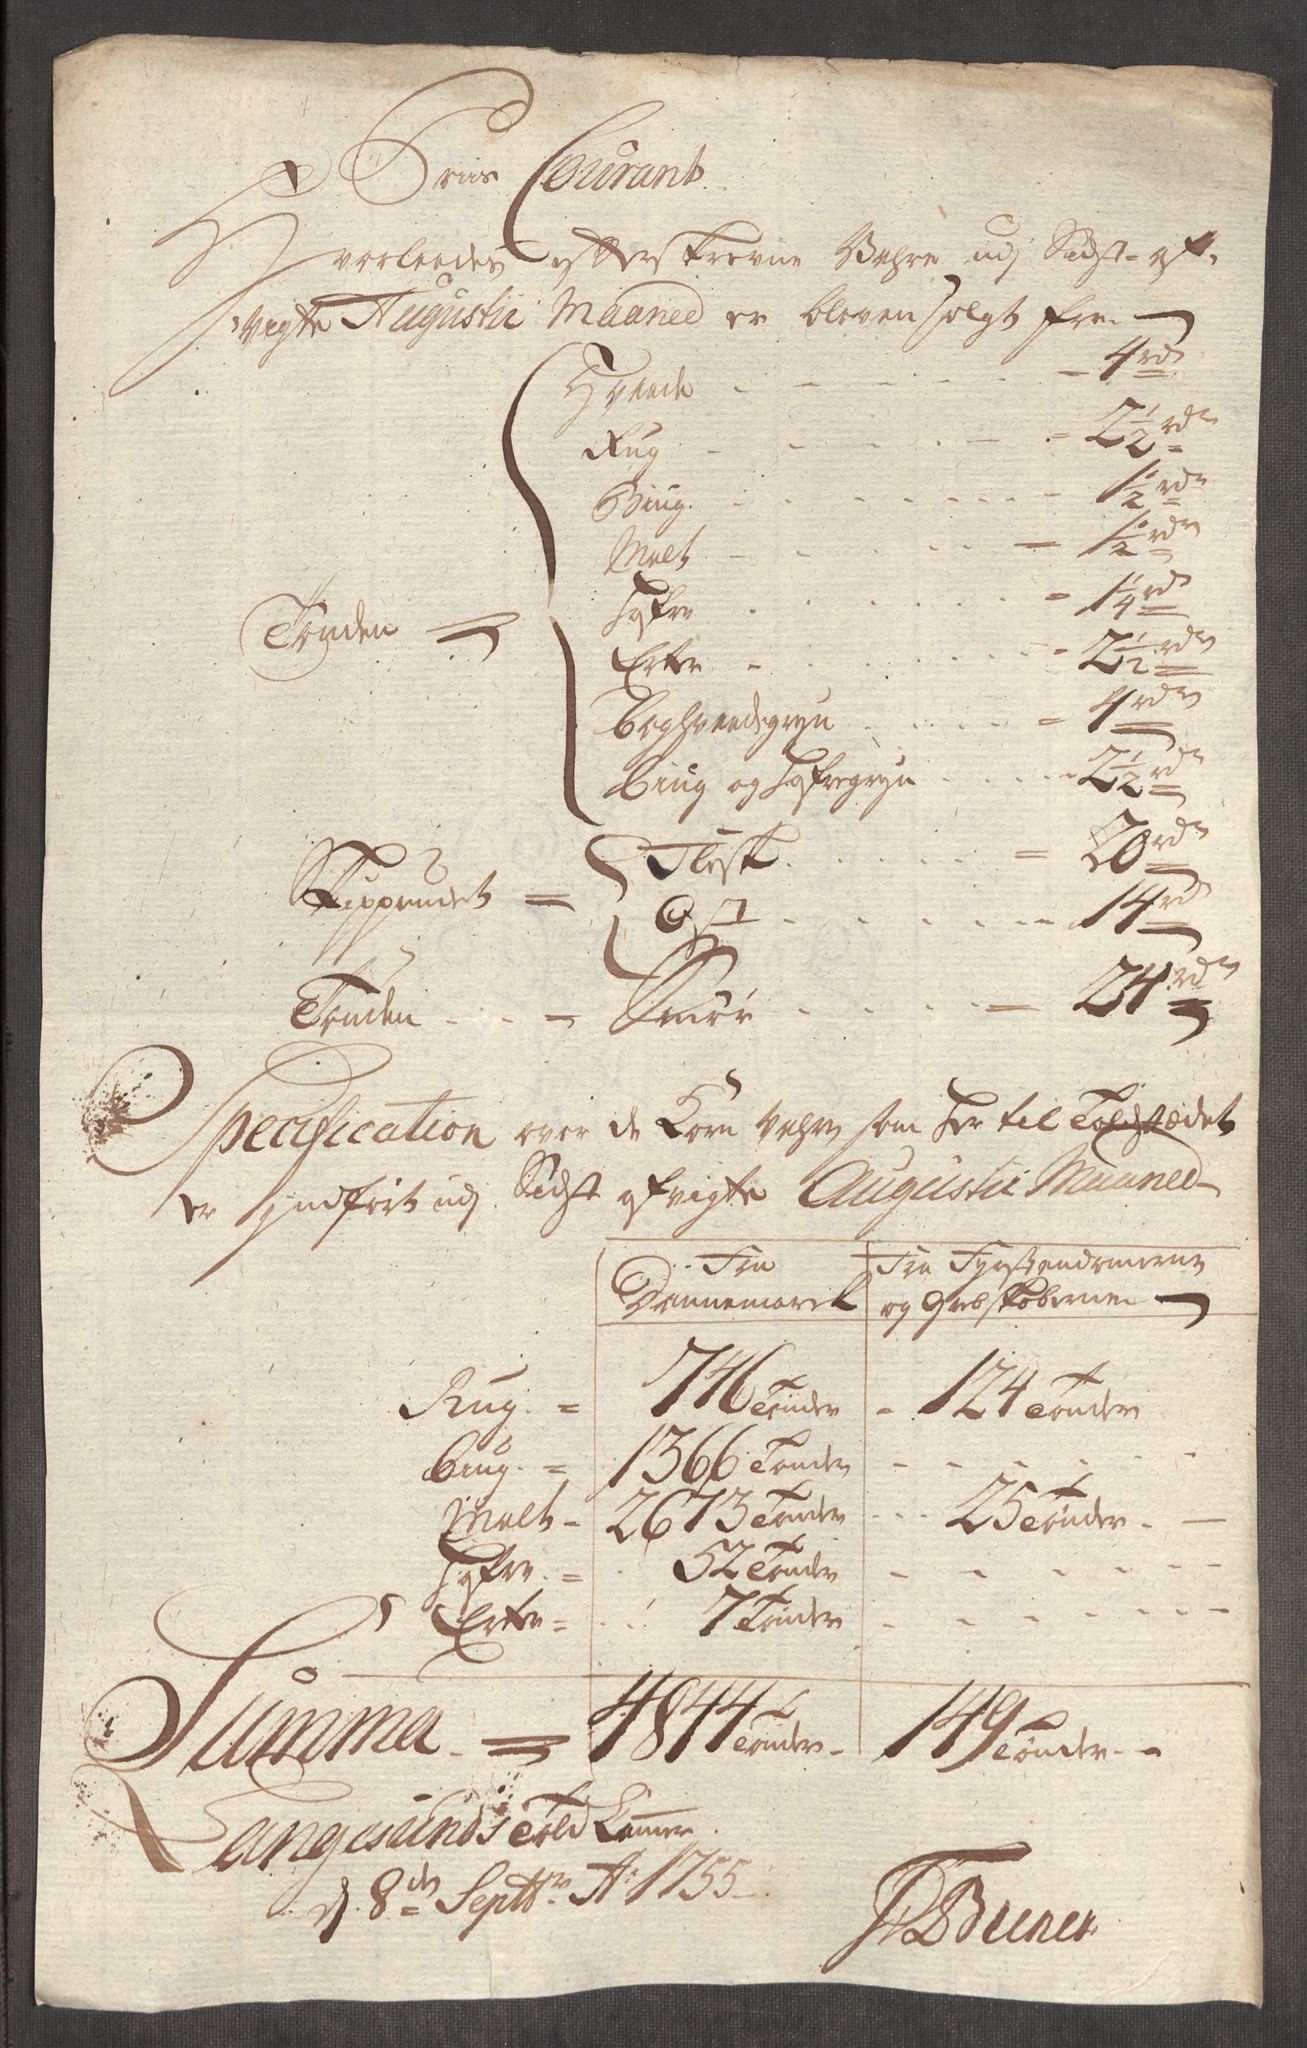 Priis Courant
Hvorleedes efterskrevne Vahre udj Sidst af-
vigte Augustii Maaned er bleven solgt for
Hveede - - - 4 rd
Rug - - - 2 1/2 rdr
Biug - - - 1/2 rdr
Malt - - - 1/2 rdr
Hafre - - - 1 1/4 rd
Tønden = Erter - - - 2 1/2 rdr
Boghveedegryn - - - 4 rdr
Biug og Hafregryn - - - 2 1/2 rdr
Skippundet = Flesk - - - 20 rdr
Ost - - - 14 rd
Tønden - - Smør - - - 24 rdr
Specification over de Korn Vahre som her til Toldstædet
er indført udj Sidst afvigte Augustii Maaned
Fra Dannemarck | Fra Fyrstendømerne og Grevskaberne
Rug = 746 Tønder - 124 Tønder
Biug = 1366 Tønder - - -
Malt - 2673 Tønder - - - 25 Tønder
Hafre = 52 Tønder - - -
Erter = 7 Tønder - - -
Summa = 4844 Tønder - 149 Tønder
Langesunds Told Kammer
d 8de Septbr Ao 1755